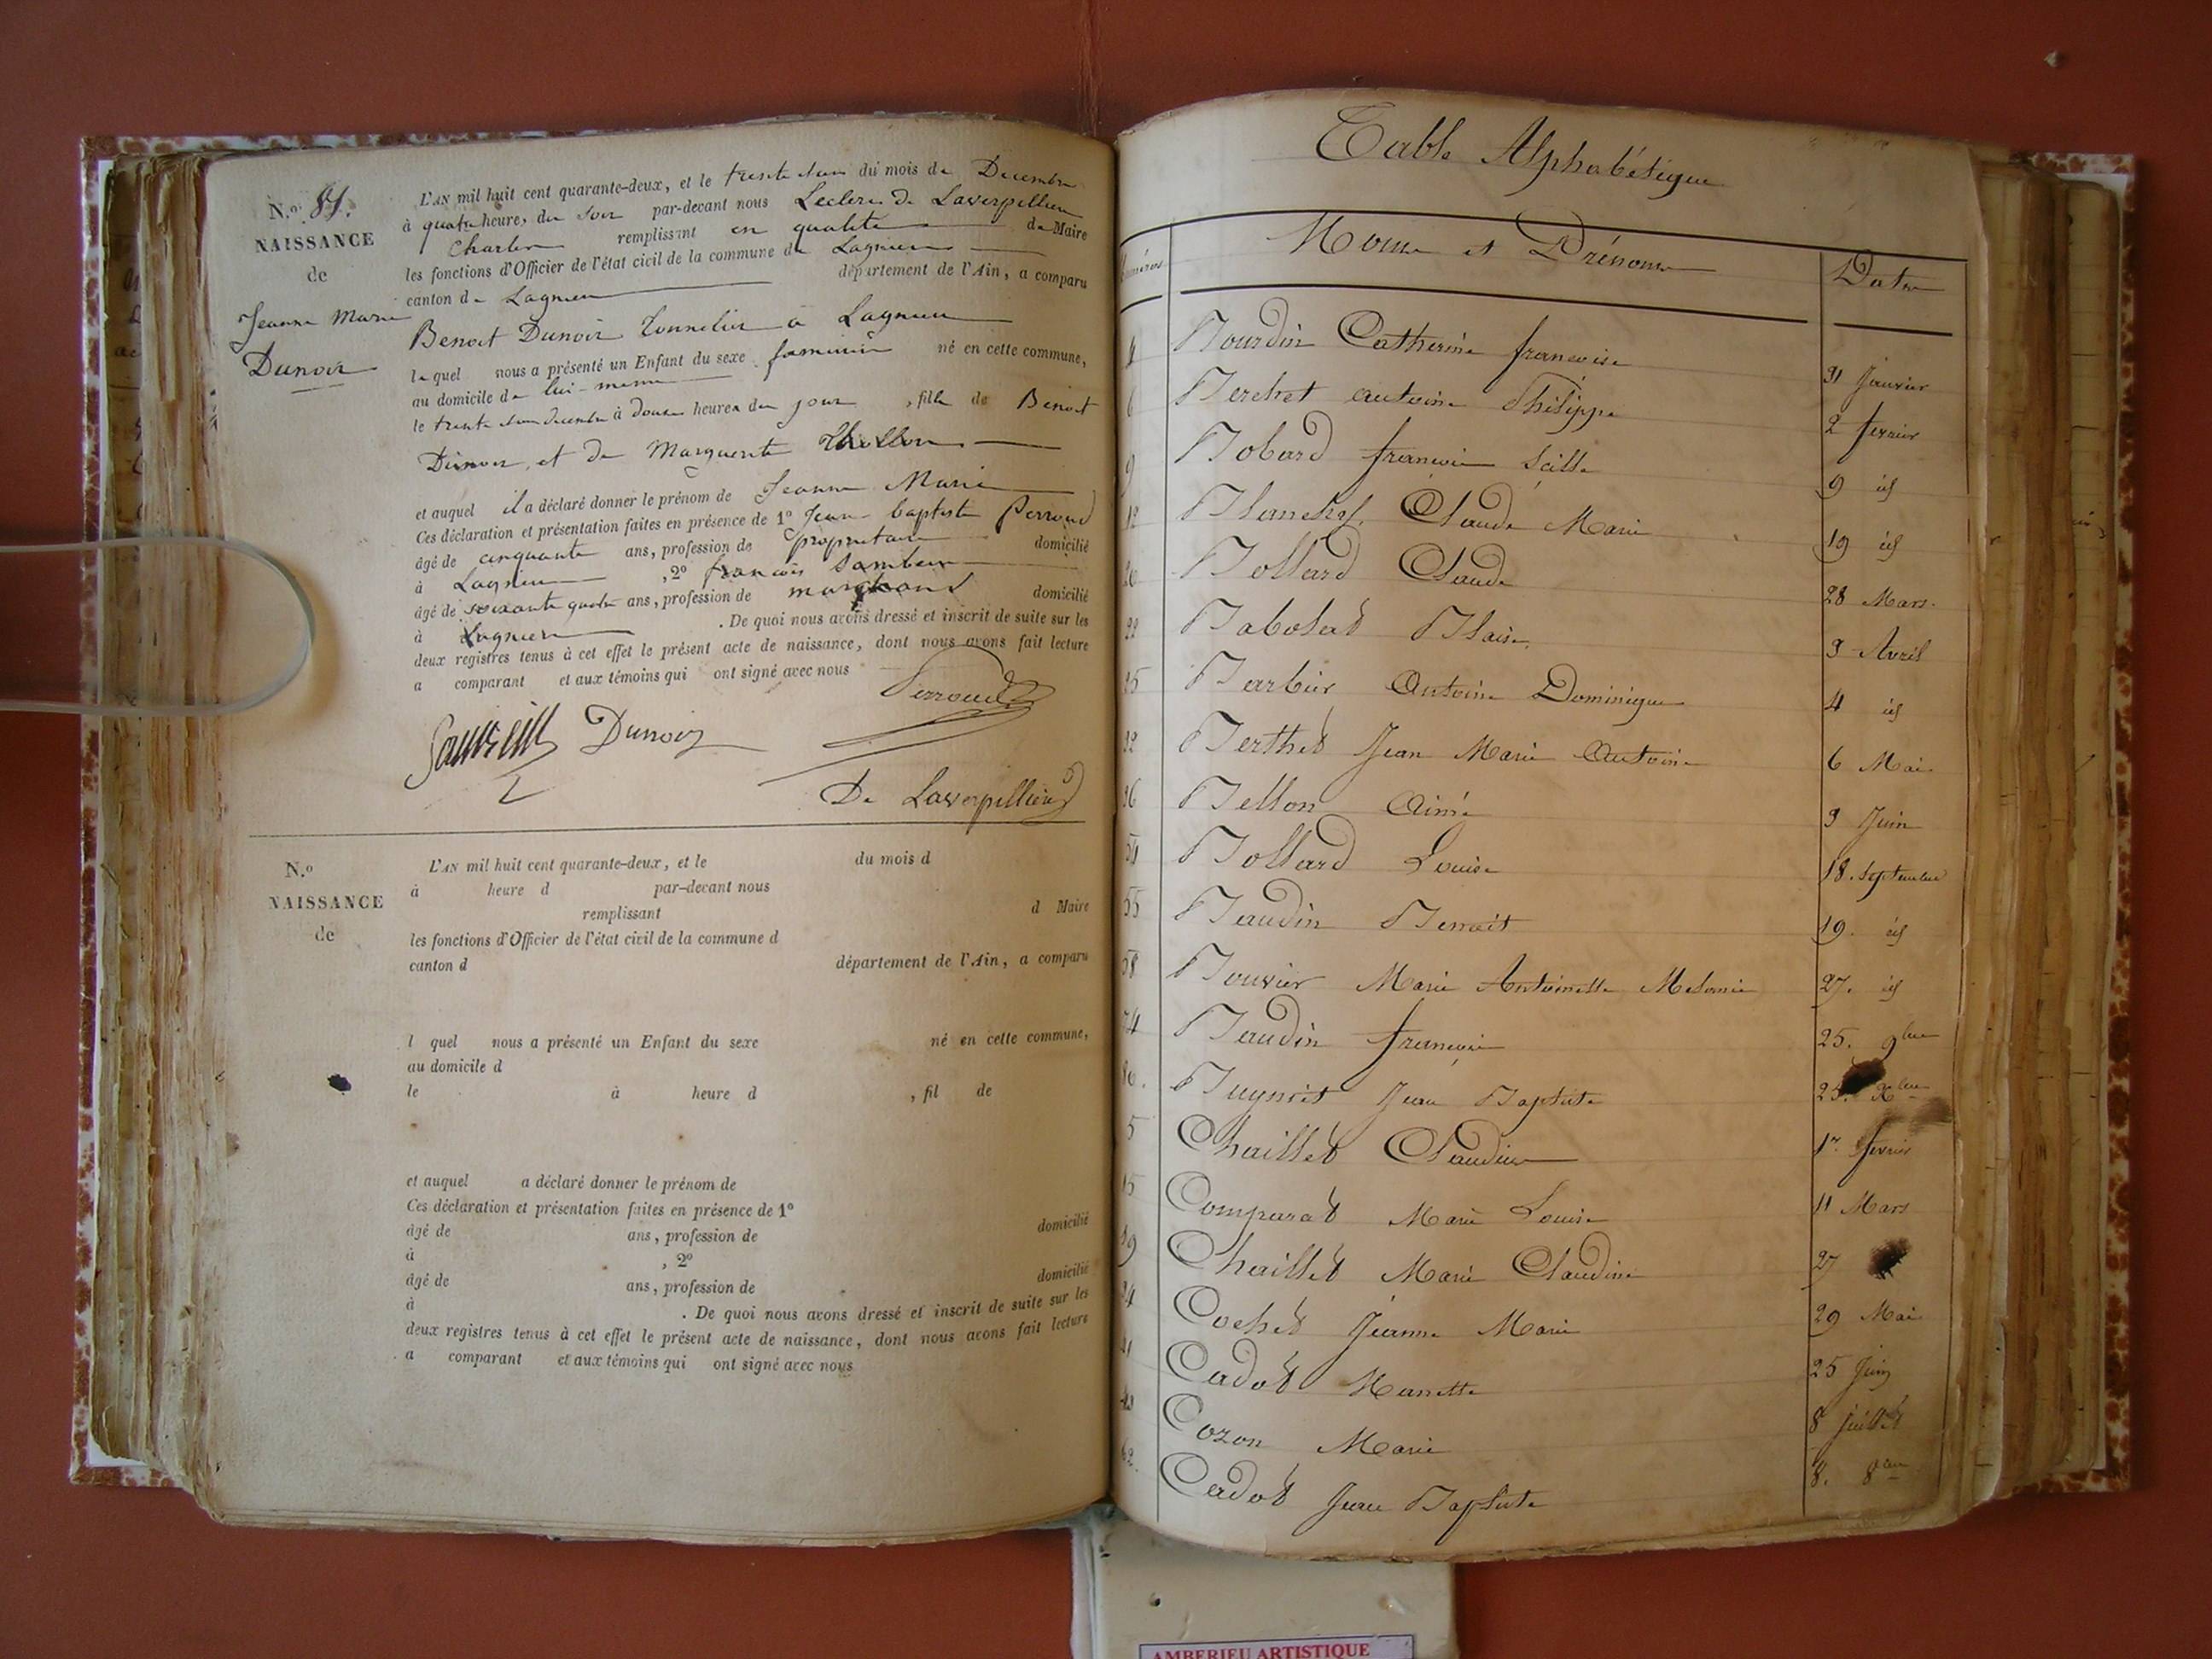 N.º 81.
NAISSANCE
de
Jeanne Marie
Dunoir
L'AN mil huit cent quarante-deux, et le trente du mois de Decembre
à quatre heure, du soir par-devant nous Leclerc de Laverpillier
Charles remplissant en qualité de Maire
les fonctions d'Officier de l'état civil de la commune de Lagnieu
canton de Lagnieu département de l'Ain, a comparu
Benoit Dunoir Tonnelier a Lagnieu
lequel nous a présenté un Enfant du sexe feminin né en cette commune,
au domicile de lui-meme
le trente decembre à douze heures du jour, fille de Benoit
Dunoir, et de Marguerite
et auquel il a déclaré donner le prénom de Jeanne Marie
Ces déclaration et présentation faites en présence de 1º Jean-baptiste Perroud
âgé de cinquante ans, profession de proprietaire domicilié
à Lagnieu, 2º françois
âgé de soixante quatre ans, profession de marchand domicilié
à Lagnieu. De quoi nous avons dressé et inscrit de suite sur les
deux registres tenus à cet effet le présent acte de naissance, dont nous avons fait lecture
a comparant et aux témoins qui ont signé avec nous
Perroud
Dunoir
De Laverpillier
N.º
NAISSANCE
de
L'AN mil huit cent quarante-deux, et le du mois d
à heure d par-devant nous
remplissant d Maire
les fonctions d'Officier de l'état civil de la commune d
canton d département de l'Ain, a comparu
l quel nous a présenté un Enfant du sexe né en cette commune,
au domicile d
le à heure d , fil de
et auquel a déclaré donner le prénom de
Ces déclaration et présentation faites en présence de 1º
âgé de ans, profession de domicilié
à , 2º
âgé de ans, profession de domicilié
à . De quoi nous avons dressé et inscrit de suite sur les
deux registres tenus à cet effet le présent acte de naissance, dont nous avons fait lecture
a comparant et aux témoins qui ont signé avec nous
Table Alphabétique
Noms et Prénoms Dates
4 Bourdin Catherine françoise 31 Janvier
6 Berchet antoine Philippe 2 fevrier
9 Bobard françois 9 id
12 Claude Marie 19 id
20 Bollard Claude 28 Mars.
22 Babolat Blaise 3 Avril
25 Barbier Antoine Dominique 4 id
32 Berthet Jean Marie Antoine 6 Mai
36 Bellon Aimé 9 Juin
54 Bollard Louise 18. septembre
55 Baudin Benoit 19. id
58 Bouvier Marie Antoinette Melanie 27. id
74 Baudin françois 25. 9bre
80. Jean Baptiste 25. Xbre
5 Chaillet Claudine 1er fevrier
15 Comparat Marie Louise 11 Mars
19 Chaillet Marie Claudine 27
34 Cochet Jeanne Marie 29 Mai
41 Cadot Mariette 25 Juin
42 Cozon Marie 8 juillet
62. Cadot Jean Baptiste 8. 8bre
AMBERIEU ARTISTIQUE